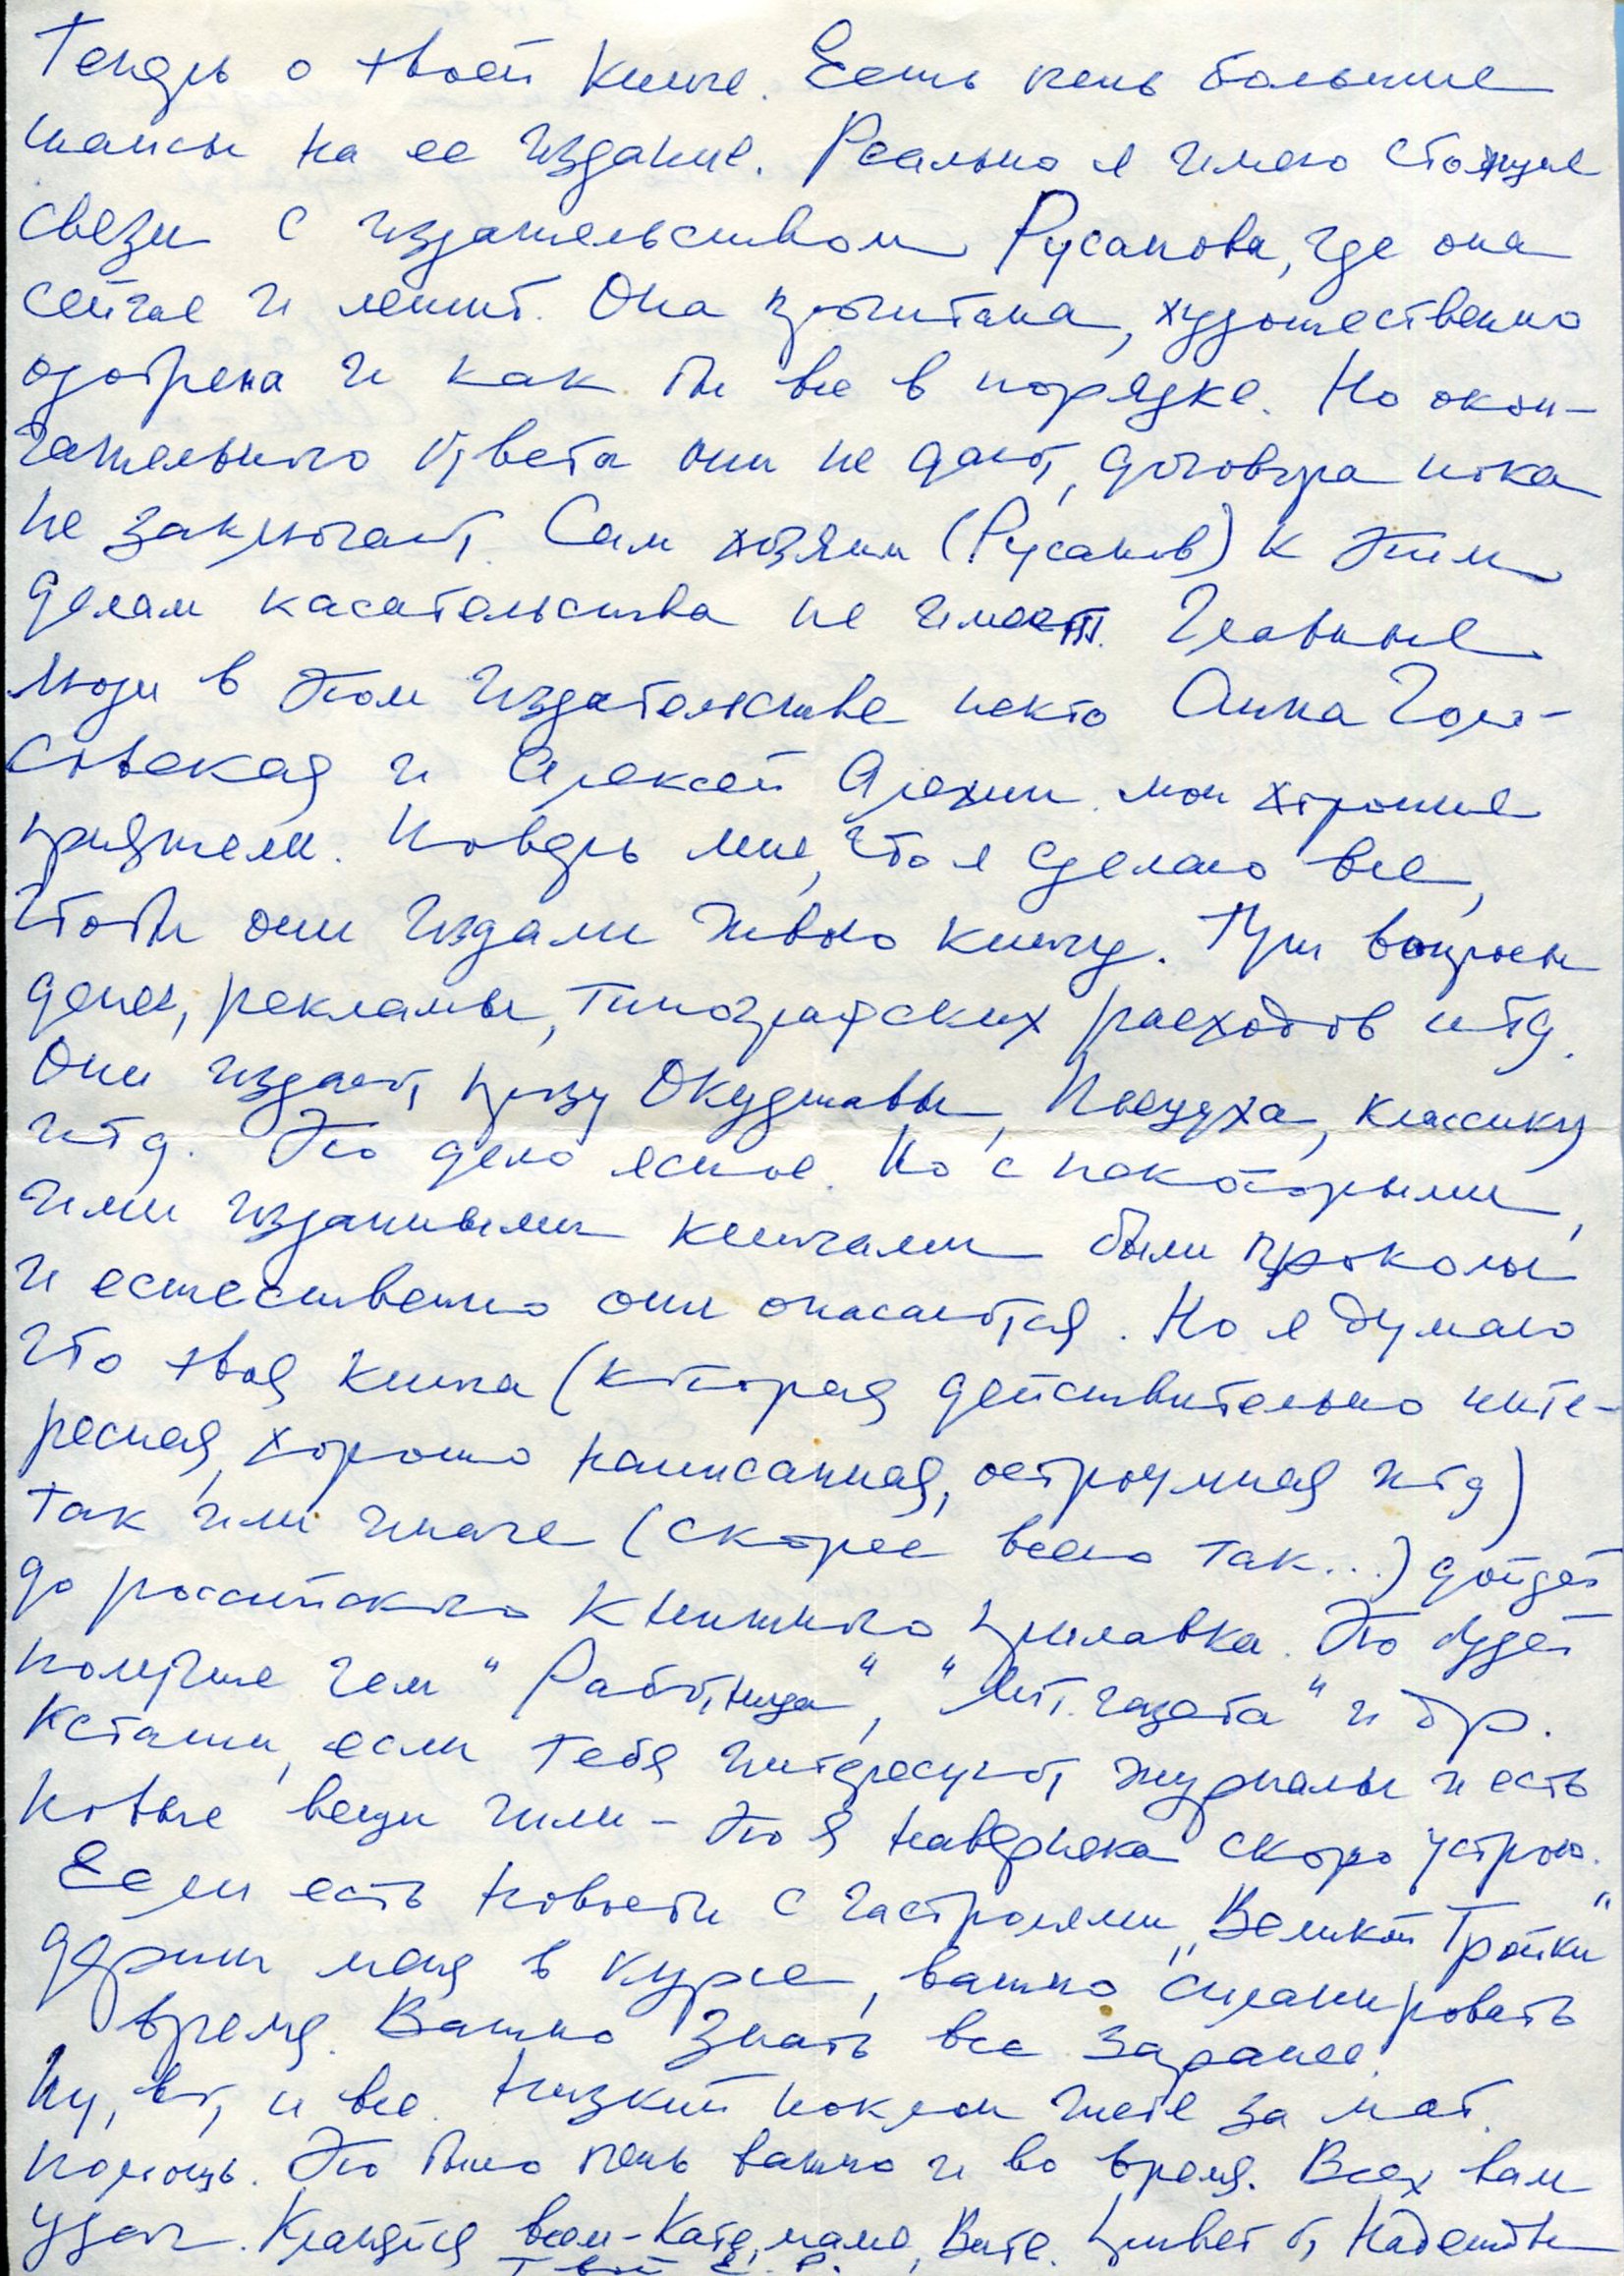 Теперь о твоей книге. Есть очень большие
шансы на ее издание. Реально я имею стоящие
связи с издательством Русанова, где она
сейчас и лежит. Она прочитана, художественно
одобрена и как бы все в порядке. Но окон-
чательного ответа они не дают, договора пока
не заключают. Сам хозяин (Русанов) к этим
делам касательства не имеет. Главные
люди в этом издательстве некто Анна
и Алексей Алехин мои хорошие
приятели. Поверь мне, что я сделаю все,
чтобы они издали твою книгу. Тут вопросы
денег, рекламы, типографских расходов итд.
Они издают прозу Окуджавы, Пьецуха, классику
итд. Это дело ясное. Но с некоторыми,
ими изданными книгами были проколы
и естественно они опасаются. Но я думаю
что твоя книга (которая действительно инте-
ресная, хорошо написанная, остроумная итд)
так или иначе (скорее всего так...) дойдет
до российского книжного прилавка. Это будет
получше чем "Работница", "Лит. газета" и др.
Кстати, если тебя интересуют журналы и есть
новые вещи или - это я наверняка скоро устрою.
Если есть новости с гастролями "Великой Тройки"
держи меня в курсе, важно спланировать
время. Важно знать все заранее.
Ну, вот, и все. Низкий поклон тебе за мат.
помощь. Это было очень важно и во время. Всех вам
удач. Кланяйся всем - Кате, маме, Вите. Привет от Надежды
Твой Е. Р.